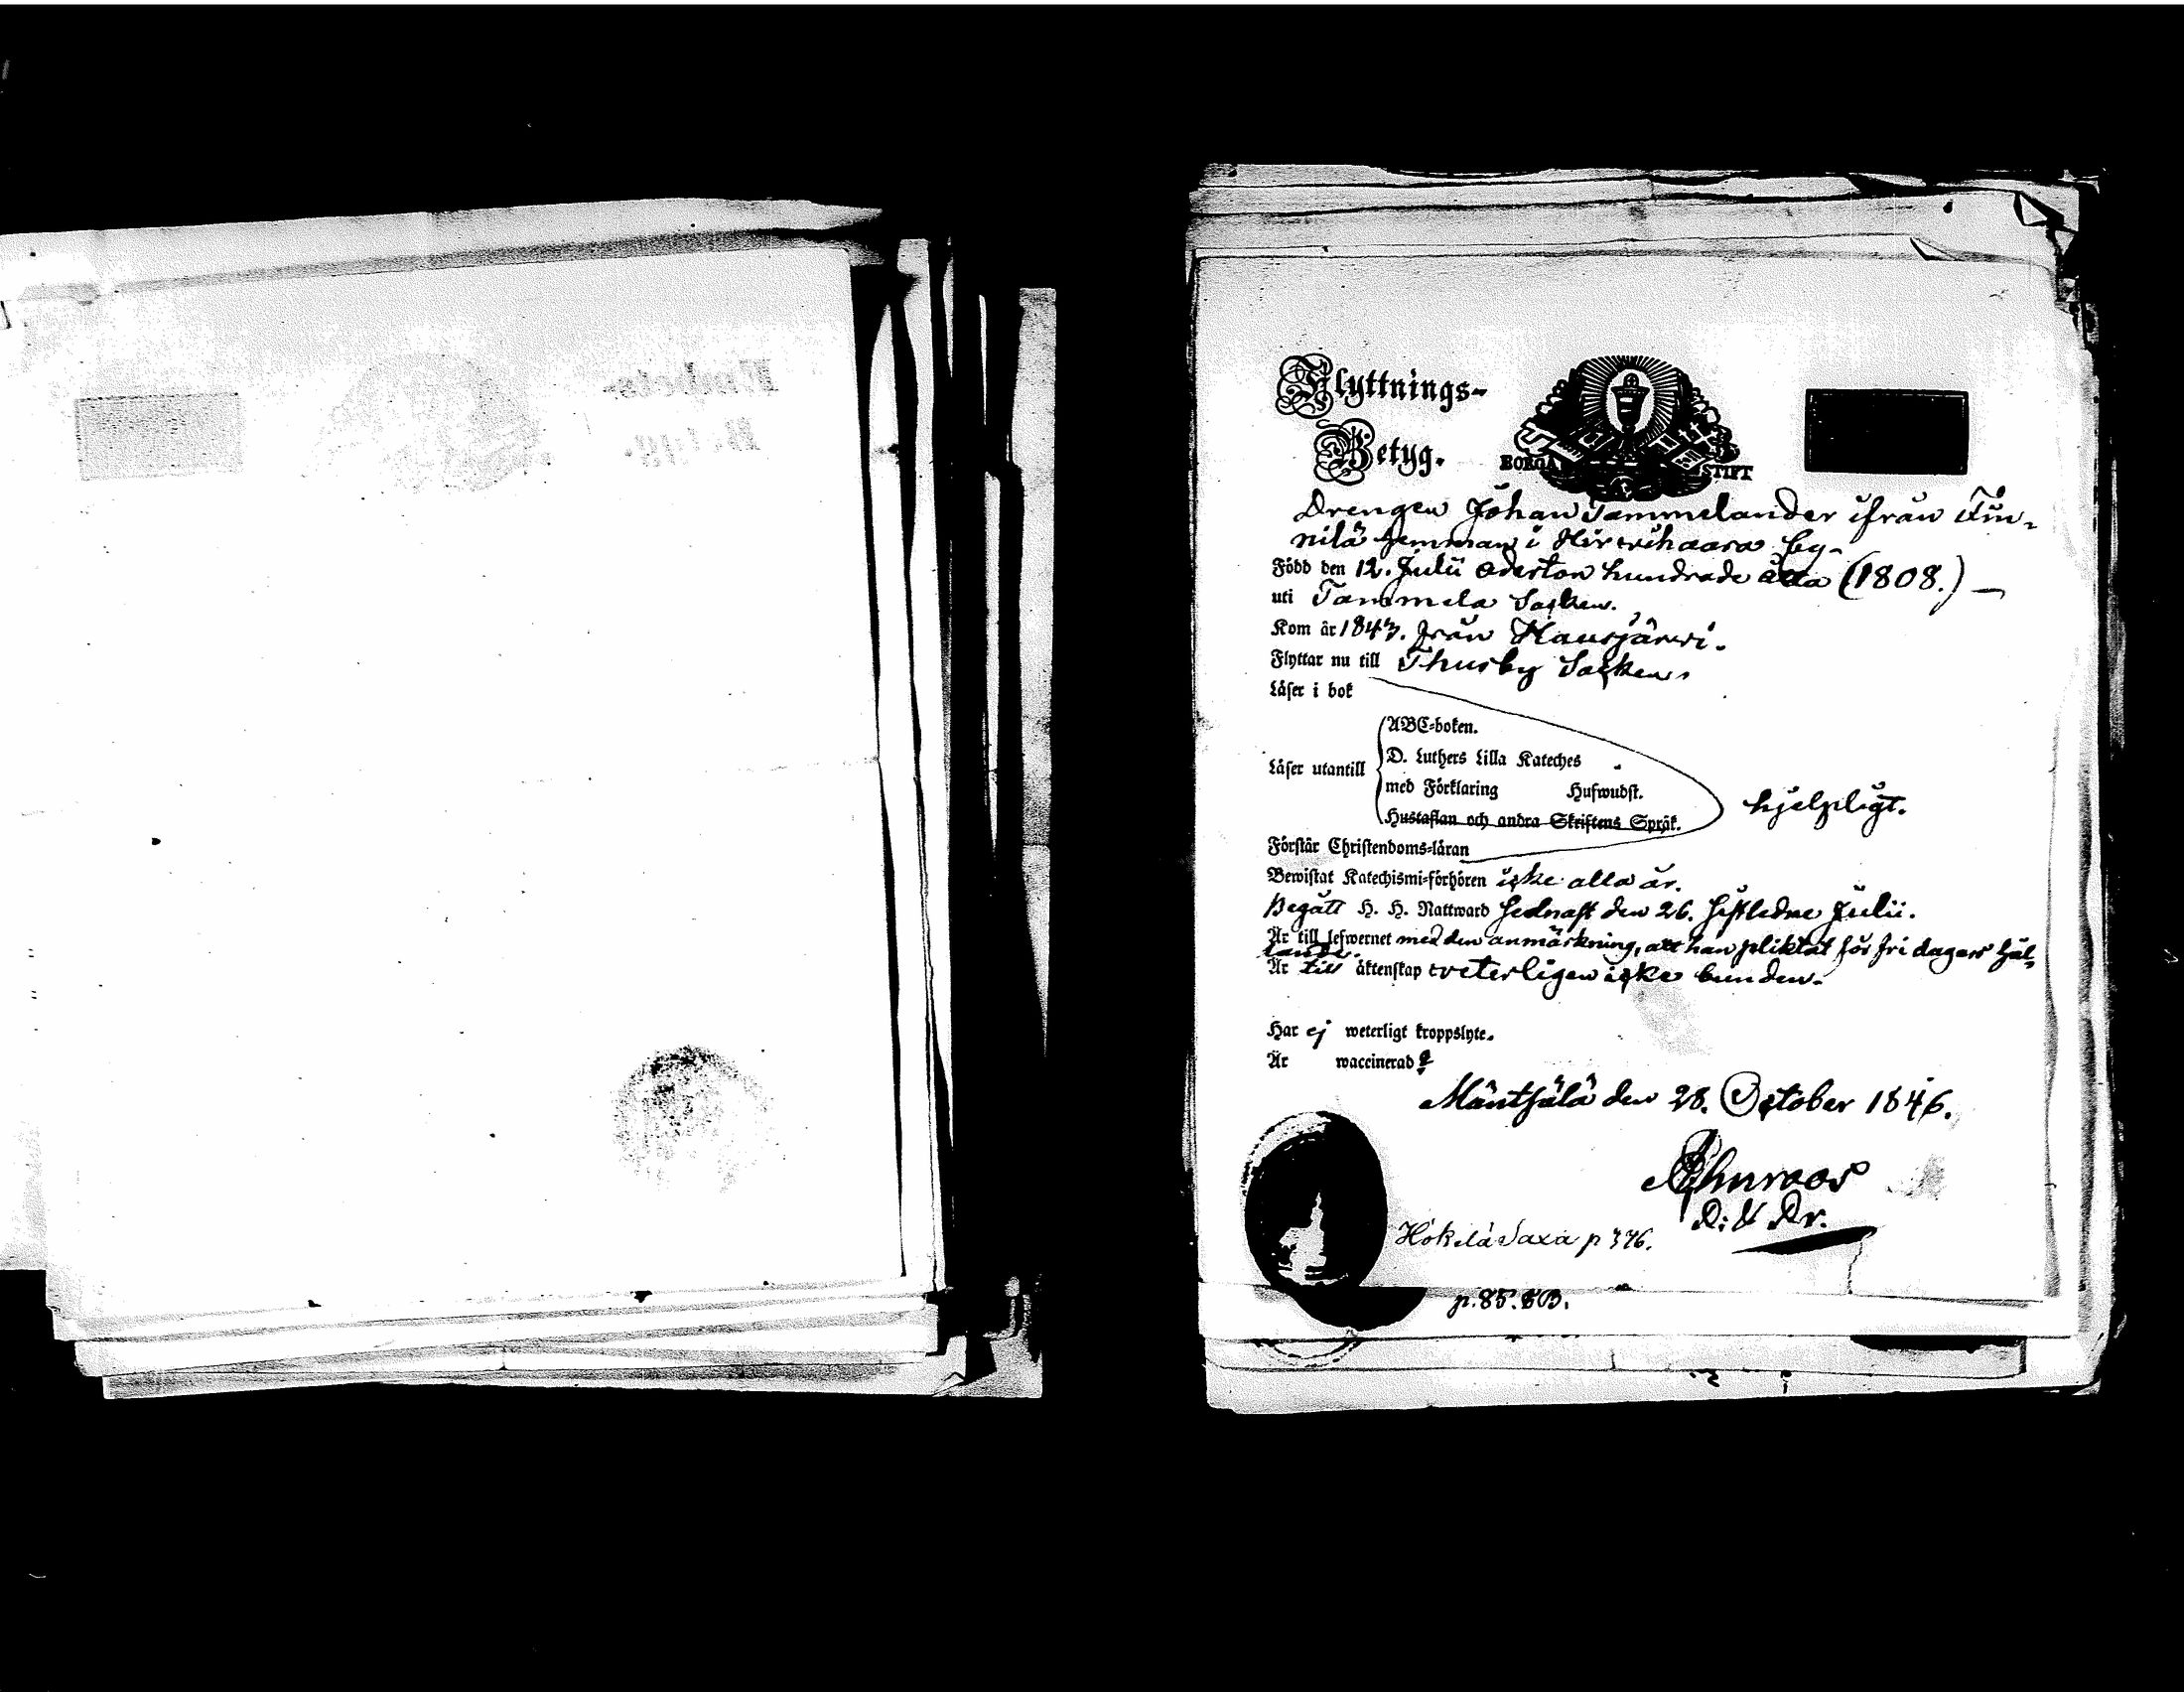 Flyttnings-
Betyg.
BORGÅ STIFT
Drengen Johan Tammelander ifrån Fin-
nilä hemman i Hirvihaara by.
Född den 12. Julii Aderton hundrade åtta (1808.) —
uti Tammela Socken.
Kom år 1843. från Hausjärvi.
Flyttar nu till Thusby Socken.
Läser i bok
Läser utantill
ABC-boken.
D. Luthers Lilla Kateches
med Förklaring Hufwudst.
Hustaflan och andra Skriftens Språk.
hjelpligt.
Förstår Christendoms-läran
Bewistat Katechismi-förhören icke alla år.
Begått H. H. Nattward sednast den 26. sistledne Julii.
Är till lefwernet med den anmärkning, att han pliktat för fri dagars
Är till äktenskap veterligen icke bunden.
Har ej weterligt kroppslyte.
Är waccinerad
Mäntsälä den 28. October 1846.
Ahnroos
Hökilä Saxa p 376.
p. 85.